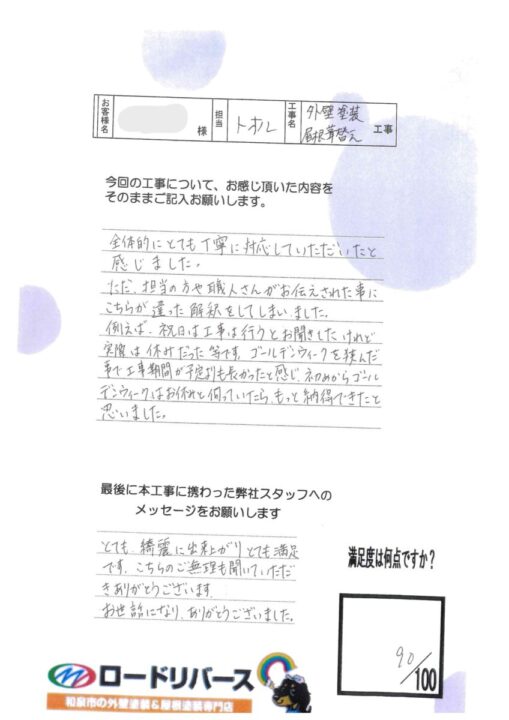 お客様名
様
担当
トオル
工事名
外壁塗装
屋根葺替え
工事
今回の工事について、お感じ頂いた内容を
そのままご記入お願いします。
全体的にとても丁寧に対応していただいたと
感じました。
ただ、担当の方や職人さんがお伝えされた事に
こちらが違った解釈をしてしまいました。
例えば、祝日は工事は行うとお聞きしたけれど
実際は休みだった等です。ゴールデンウィークを挟んだ
事で工事期間が予定よりも長かったと感じ、初めからゴール
デンウィークはお休みと伺っていたら、もっと納得できたと
思いました。
最後に本工事に携わった弊社スタッフへの
メッセージをお願いします
とても、綺麗に出来上がりとても満足
です。こちらのご無理も聞いていただ
きありがとうございます。
お世話になり、ありがとうございました。
満足度は何点ですか?
90/100
ロードリバース
和泉市の外壁塗装&屋根塗装専門店